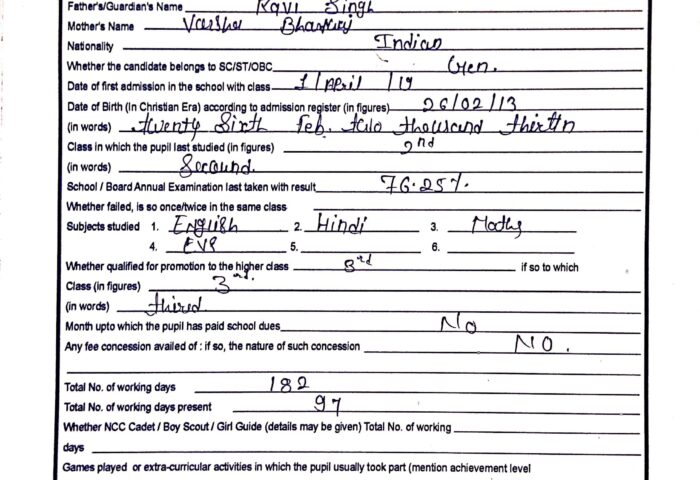 Father's/Guardian's Name Ravi Singh
Mother's Name Varsha
Nationality Indian
Whether the candidate belongs to SC/ST/OBC Gen.
Date of first admission in the school with class 1/April/19
Date of Birth (In Christian Era) according to admission register (in figures) 26/02/13
(in words) twenty Sixth Feb. two thousand thirttn
Class in which the pupil last studied (in figures) 2nd
(in words) Secound.
School / Board Annual Examination last taken with result 76.25%.
Whether failed, is so once/twice in the same class
Subjects studied 1. English 2. Hindi 3. Maths
4. EVS 5. 6.
Whether qualified for promotion to the higher class 3rd if so to which
Class (in figures) 3rd.
(in words) thired
Month upto which the pupil has paid school dues No
Any fee concession availed of : if so, the nature of such concession NO.
Total No. of working days 182
Total No. of working days present 97
Whether NCC Cadet / Boy Scout / Girl Guide (details may be given) Total No. of working
days
Games played or extra-curricular activities in which the pupil usually took part (mention achievement level